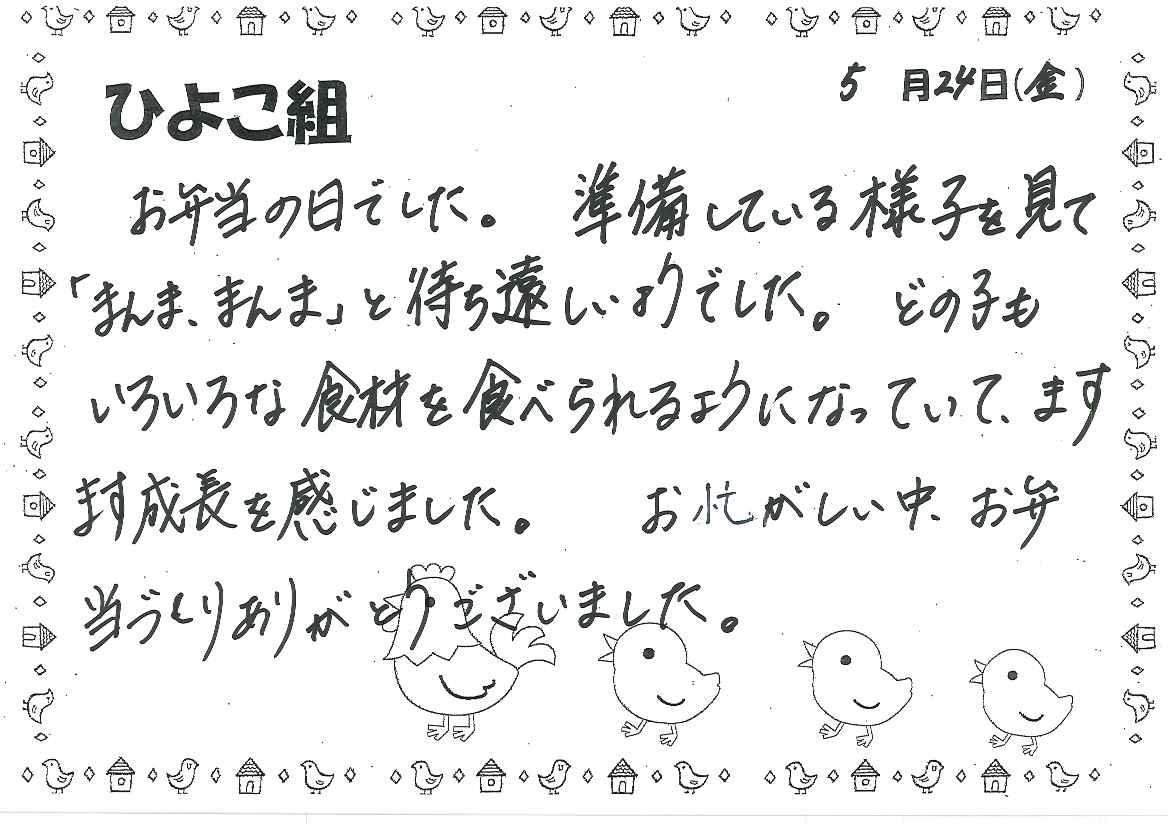 5月24日(金)
ひよこ組
お弁当の日でした。 準備している様子を見て
「まんま、まんま」と待ち遠しいようでした。 どの子も
いろいろな食材を食べられるようになっていて、ます
ます成長を感じました。 お忙がしい中、お弁
当づくりありがとうございました。